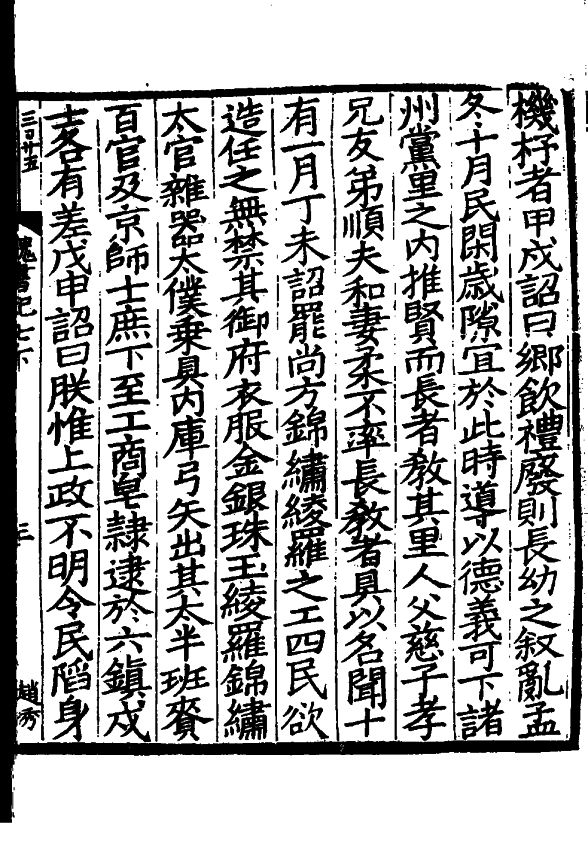 機杼者甲戌詔曰鄉飲禮廢則長幼之叙亂孟
冬十月民閑歲隙宜於此時導以德義可下諸
州黨里之内推賢而長者敎其里人父慈子孝
兄友弟順夫和妻柔不率長敎者具以名聞十
有一月丁未詔罷尚方錦繡綾羅之工四民欲
造任之無禁其御府衣服金銀珠玉綾羅錦繡
太官雜器太僕乗具内庫弓矢出其太半班賚
百官及京師士庶下至工商皁隷逮於六鎮戍
士各有差戊申詔曰朕惟上政不明令民陷身
三百廿五
魏書紀七下
三
趙秀